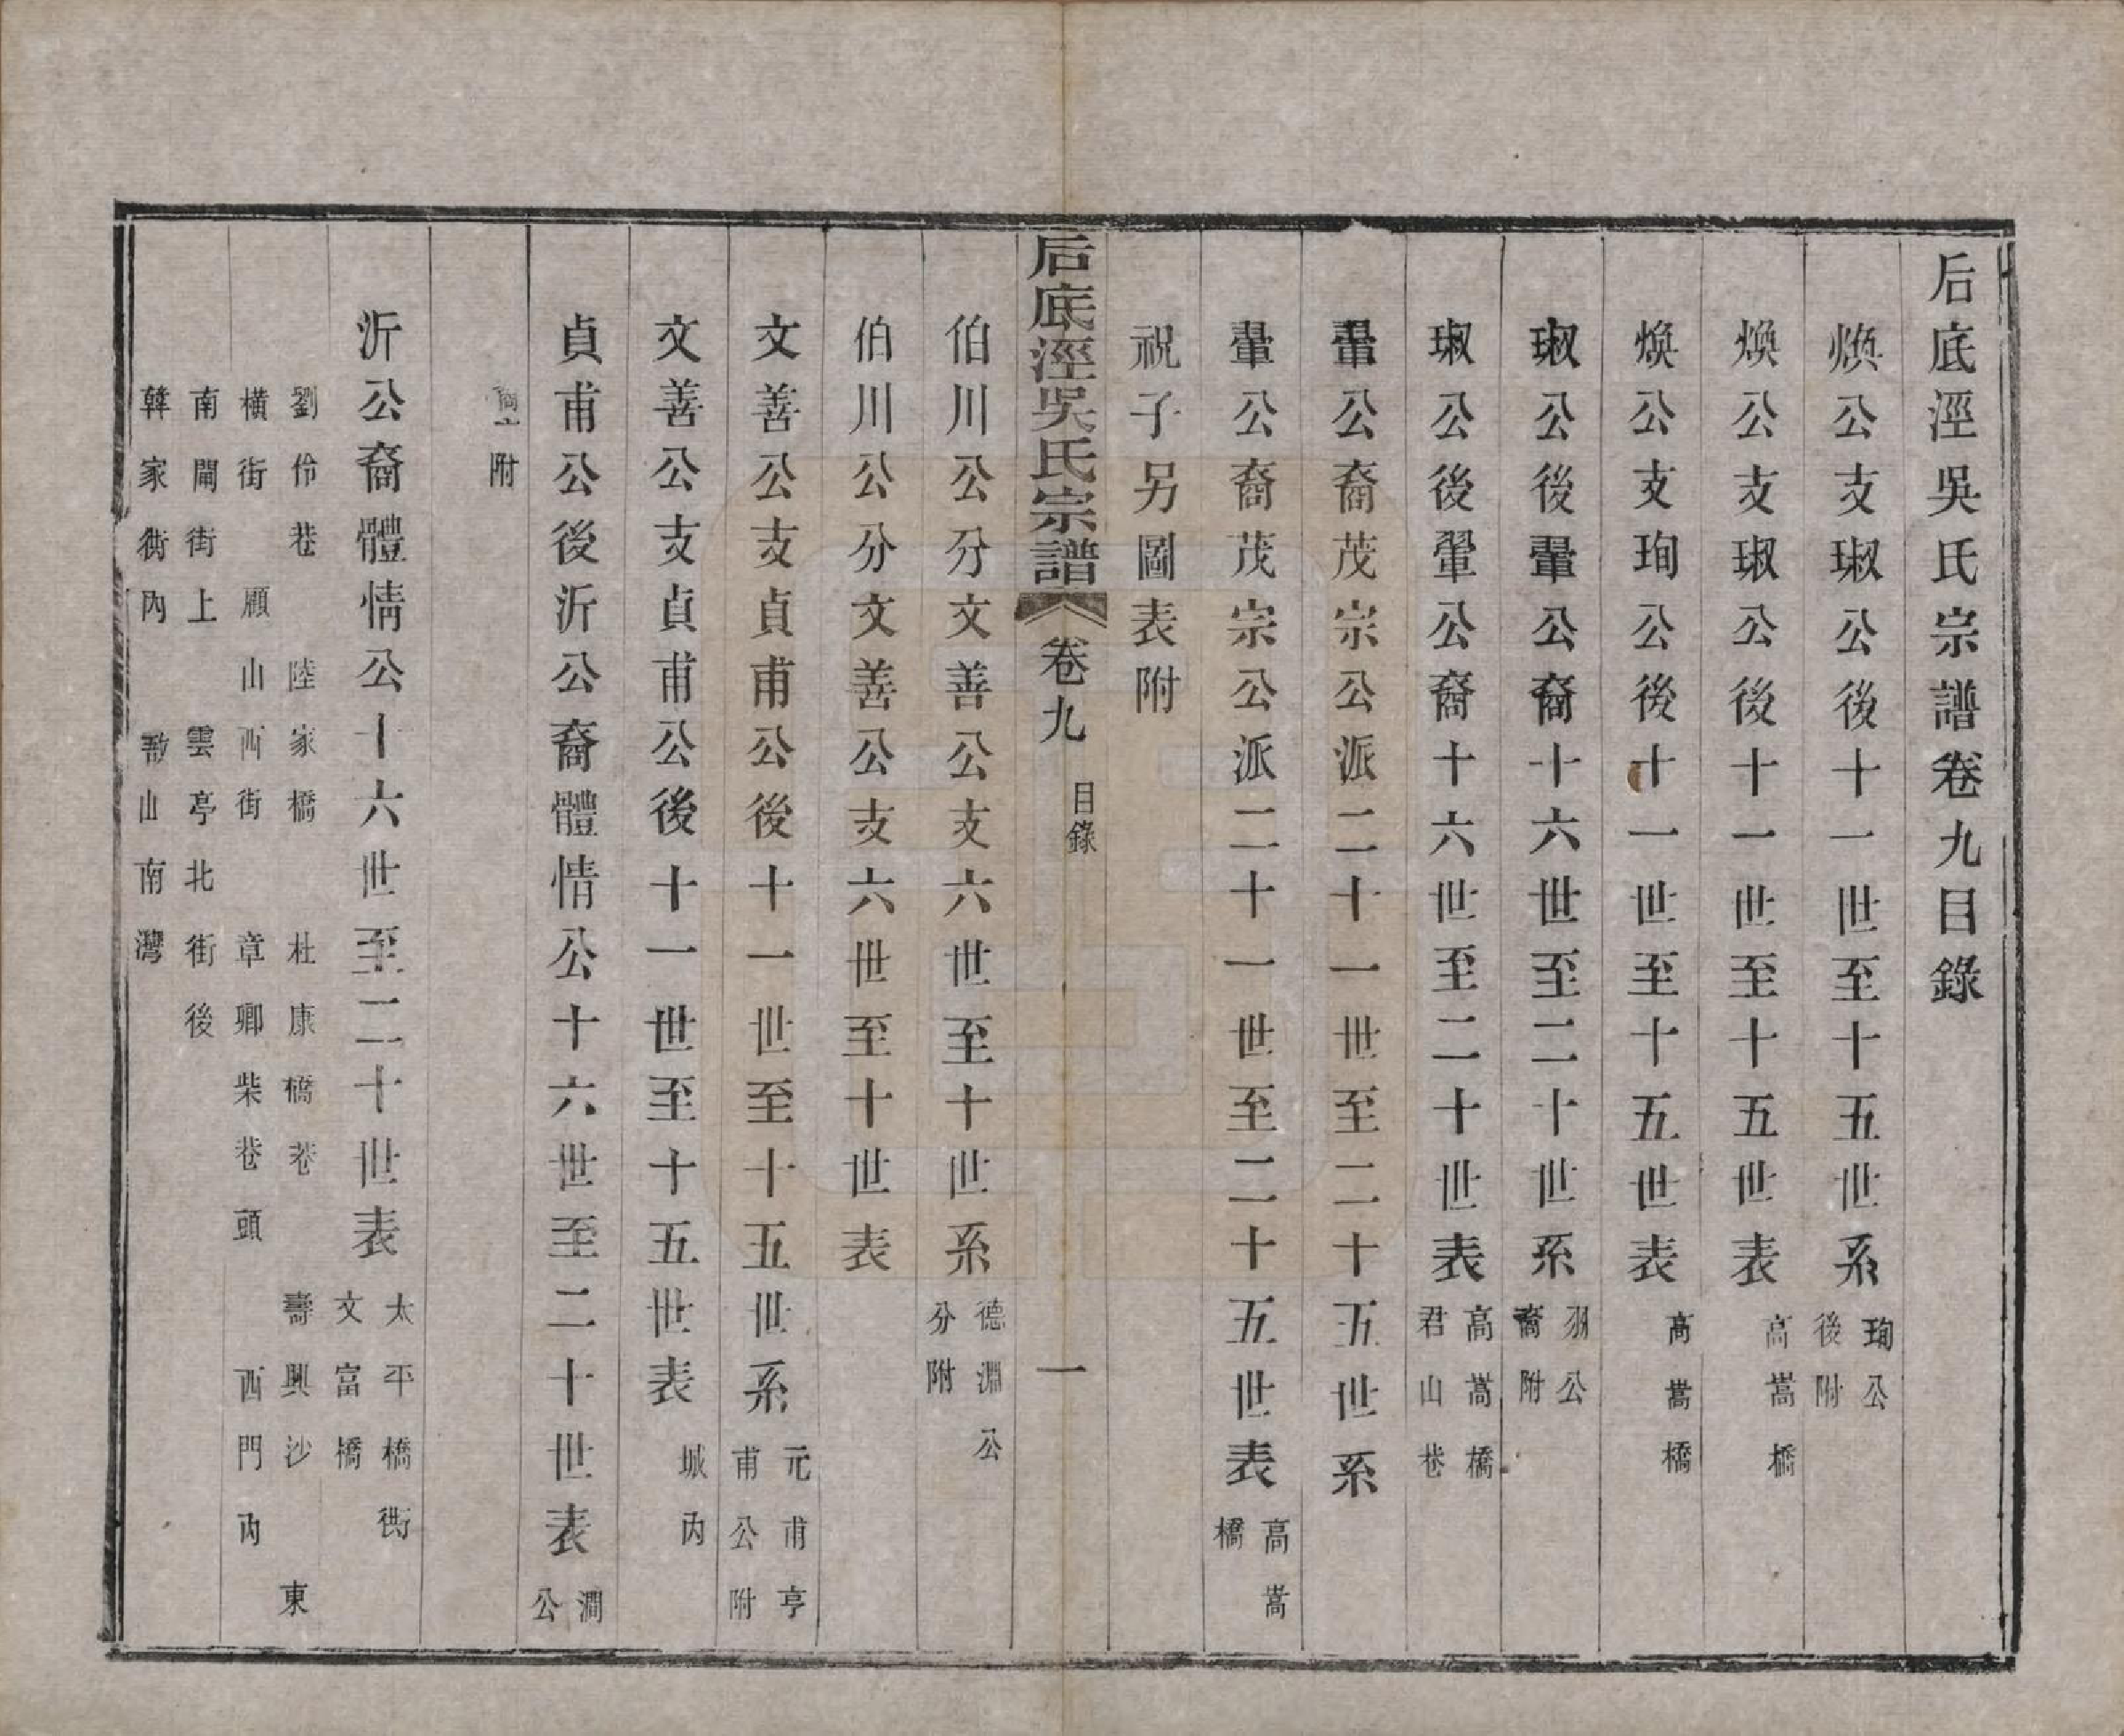 后底涇吳氏宗譜卷九目錄
煥公支琡公後十一世至十五世系 珣公後附
煥公支琡公後十一世至十五世表 高嵩橋
煥公支珣公後十一世至十五世表 高嵩橋
琡公後翬公裔十六世至二十世系 羽公裔附
琡公後翬公裔十六世至二十世表 高嵩橋 君山巷
翬公裔茂宗公派二十一世至二十五世系
翬公裔茂宗公派二十一世至二十五世表 高嵩橋
祝子另圖表附
后底涇吳氏宗譜 卷九 目錄 一
伯川公分文善公支六世至十世系 德淵公分附
伯川公分文善公支六世至十世表
文善公支貞甫公後十一世至十五世系 元甫亨甫公附
文善公支貞甫公後十一世至十五世表 城內
貞甫公後沂公裔體情公十六世至二十世表 澗公
附
沂公裔體情公十六世至二十世表 太平橋衖 文富橋
劉伶巷 陸家橋 杜康橋巷 壽興沙 東
橫街 顧山西街 章卿柴巷頭 西門內
南閘街上 雲亭北街後
韓家衖內 敔山南灣